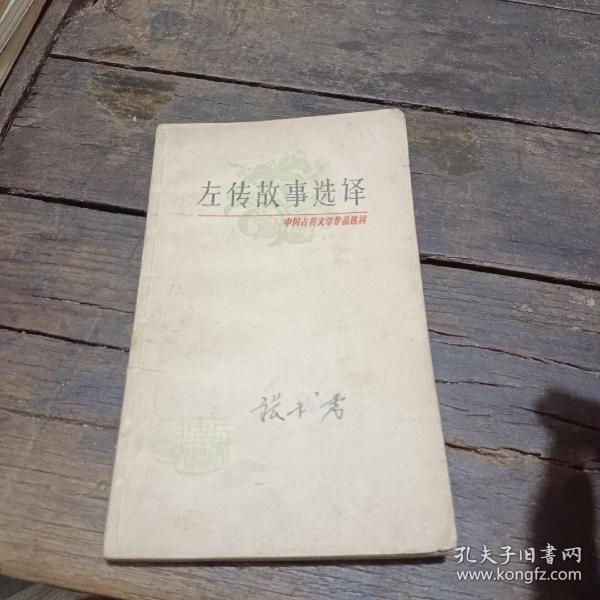 左传故事选译
中国古典文学作品选读
孔夫子旧书网
www.kongfz.com